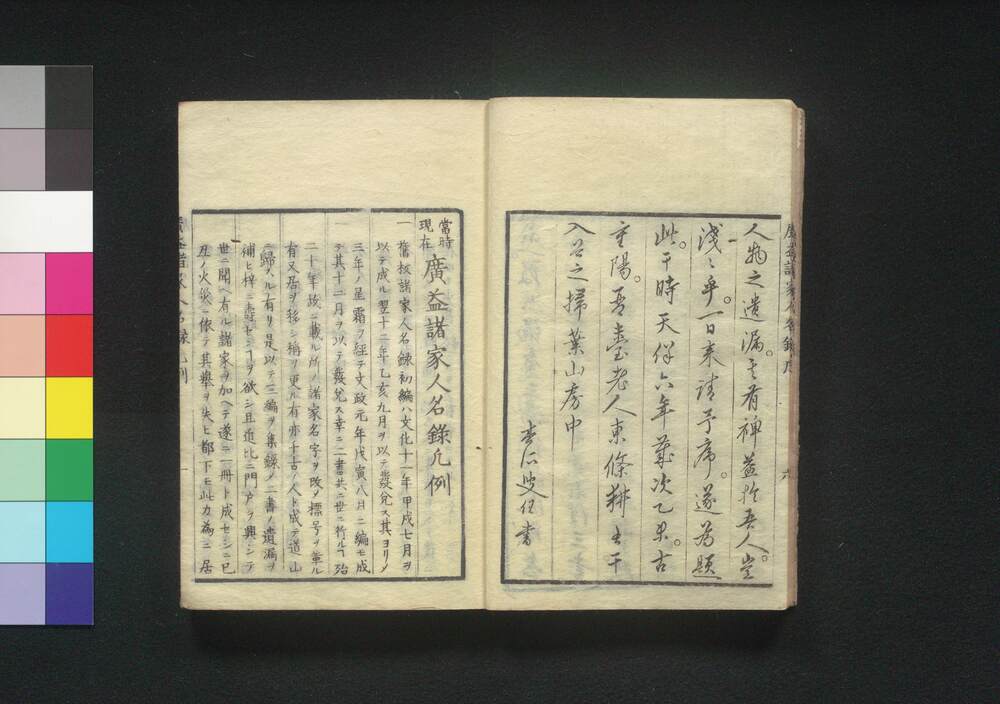 人物之遺漏。其有裨益於吾人豈
淺々乎。一日来請予序。遂為題
此。于時天保六年歳次乙未古
重陽。吾臺老人東條耕書于
入谷之掃葉山房中
書
當時
現在
廣益諸家人名錄凡例
一 舊板諸家人名録初編ハ文化十一年甲戌七月ヲ
以テ成ル翌十二年乙亥九月ヲ以テ發兌ス其ヨリ〆
三年ノ星霜ヲ経テ文政元年戊寅八月二編モ成
テ其十二月ヲ以テ發兌ス幸ニ二書共ニ世ニ行ルヿ殆
二十年故ニ載ル所ノ諸家名字ヲ改メ標号ヲ革ル
有又居ヲ移シ稱ヲ更ル有亦千古ノ人ト成テ道山
ニ歸ル有リ是以テ三編ヲ集録メ二書ノ遺漏ヲ
補ヒ梓ニ壽セシヿヲ欲シ且近比ニ門戸ヲ興シテ
世ニ聞ヘ有ル諸家ヲ加ヘテ遂ニ一冊ト成セシニ已
丑ノ火災ニ依テ其擧ヲ失ヒ都下モ此カ為ニ居